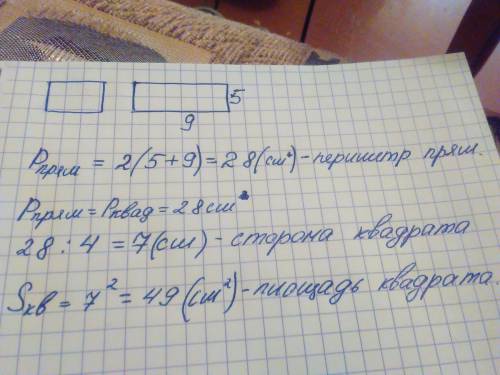 5
9
Pпрям = 2(5+9)=28(см²)-периметр прям.
Pпрям=Pквад=28см
28:4=7(см)-сторона квадрата
Sкв=7²=49(см²)-площадь квадрата.